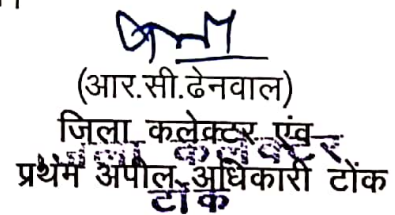 (आर.सी.ढेनवाल)
जिला कलेक्टर एंव
जिला कलेक्टर
प्रथम अपील अधिकारी टोंक
टोंक